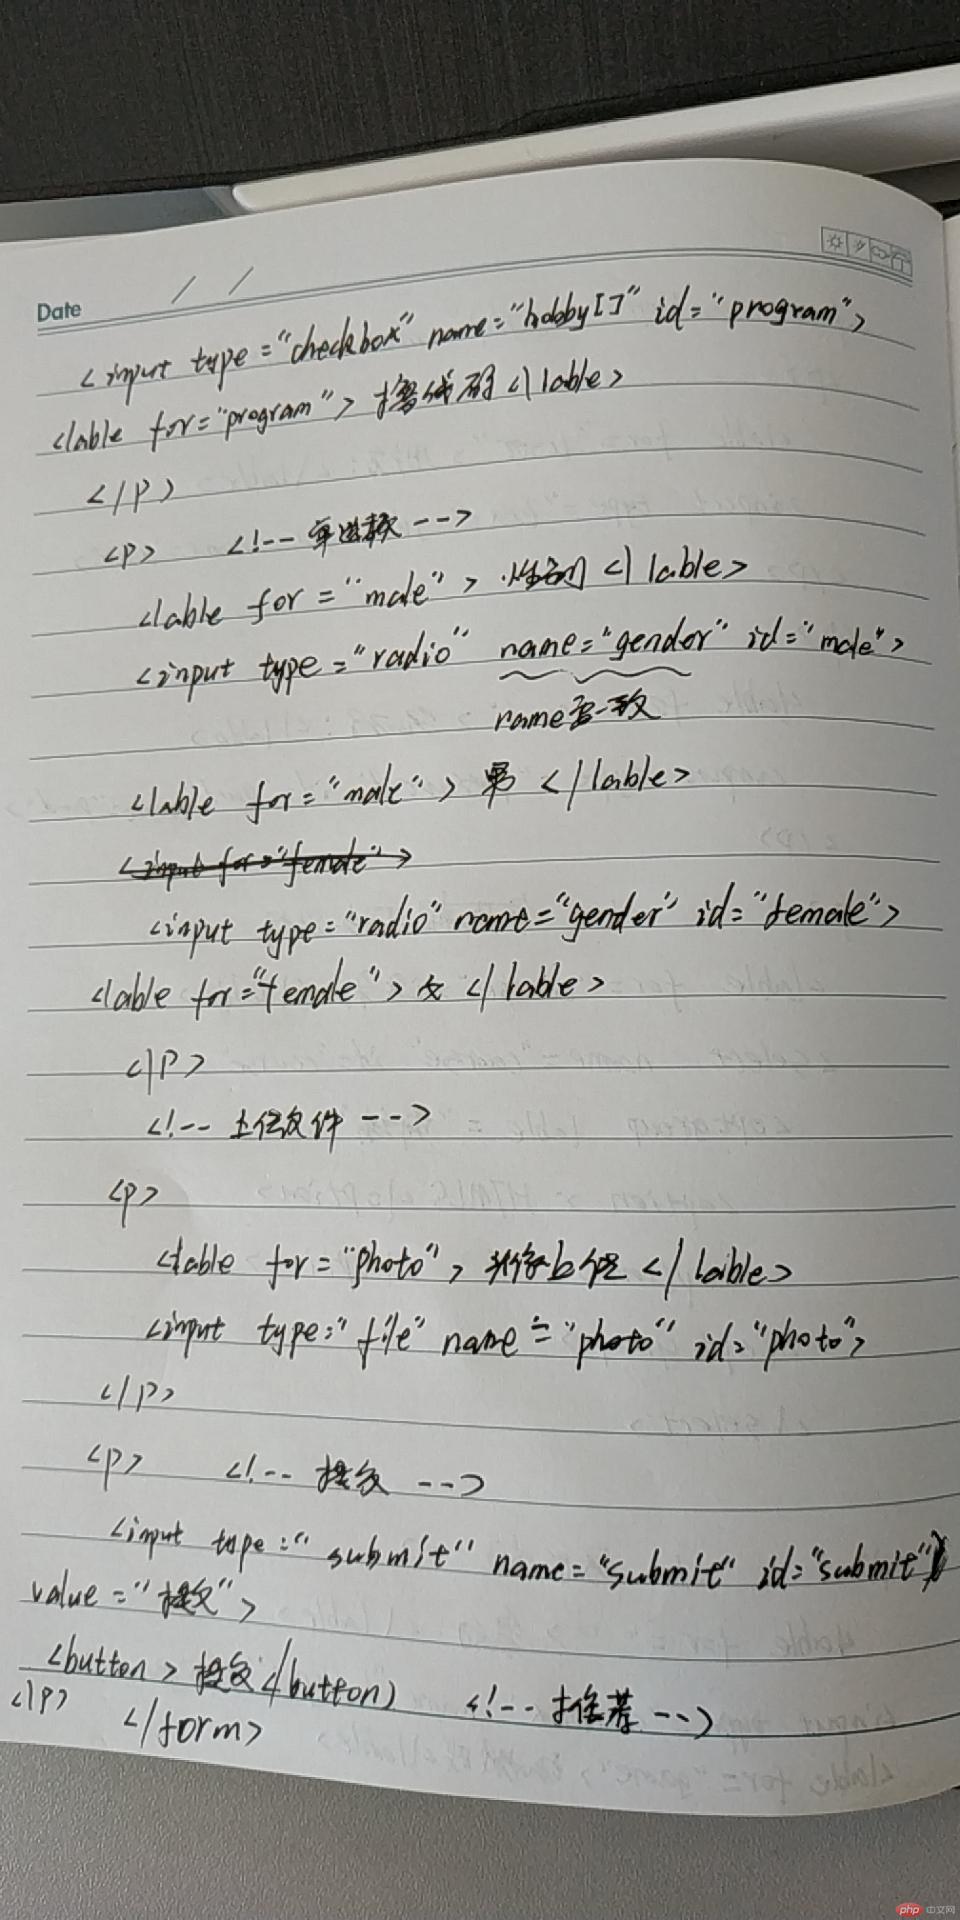 Date / /
<input type="checkbox" name="hobby[]" id="program">
<lable for="program"> 撸代码 </lable>
</p>
<p> <!-- 单选款 -->
<lable for="male"> 性别 </lable>
<input type="radio" name="gender" id="male">
name要一致
<lable for="male"> 男 </lable>
<input for="female">
<input type="radio" name="gender" id="female">
<lable for="female"> 女 </lable>
</p>
<!-- 上传文件 -->
<p>
<lable for="photo"> </lable>
<input type="file" name="photo" id="photo">
</p>
<p> <!-- 提交 -->
<input type="submit" name="submit" id="submit"
value="提交">
<button> 提交</button> <!-- 推荐 -->
</p> </form>
php 中文网